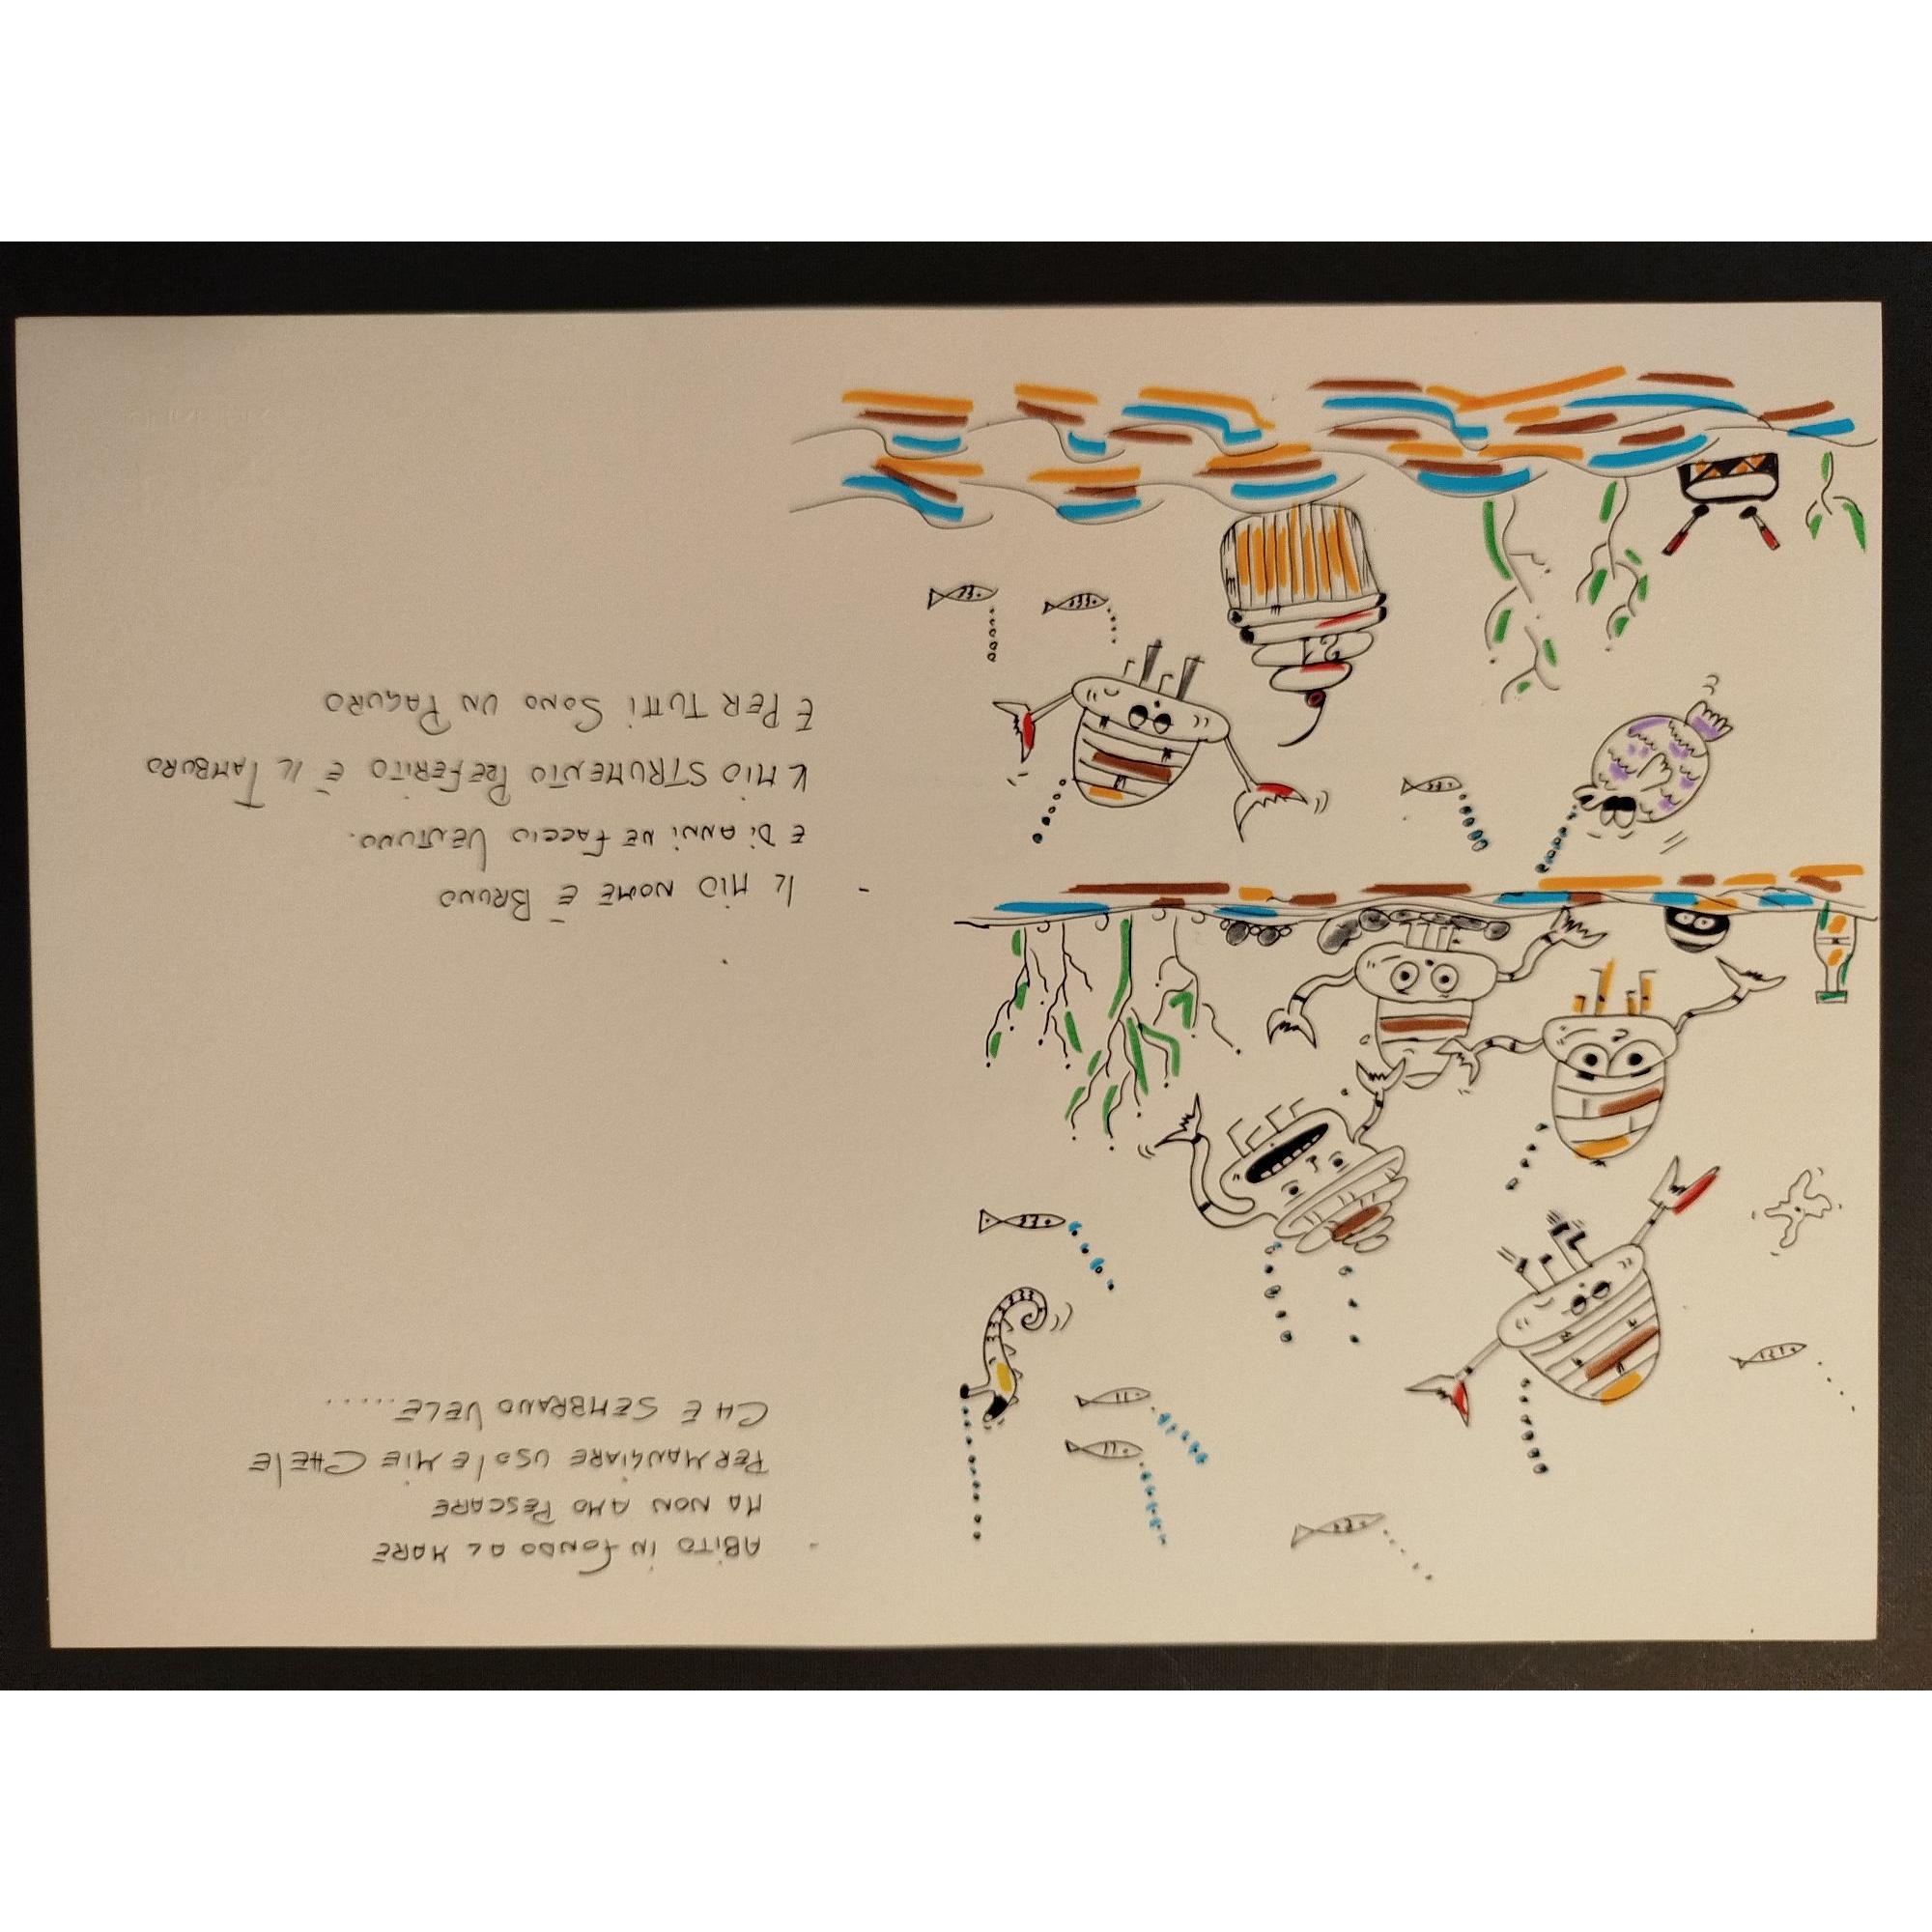 ABITO IN FONDO AL MARE
MA NON AMO PESCARE
PER MANGIARE USO LE MIE CHELE
CHE SEMBRANO VELE.....
IL MIO NOME È BRUNO
E DI ANNI NE FACCIO VENTUNO.
IL MIO STRUMENTO PREFERITO È IL TAMBURO
E PER TUTTI SONO UN PAGURO